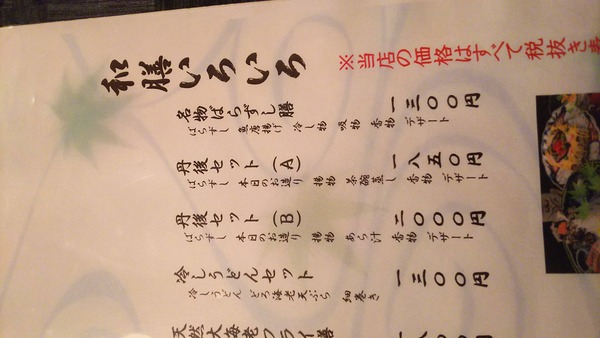 和膳いろいろ
※当店の価格はすべて税抜き
名物ばらずし膳 一三〇〇円
ばらずし 魚唐揚げ 冷し物 吸物 香物 デザート
丹後セット（A） 一八五〇円
ばらずし 本日のお造り 揚物 茶碗蒸し 香物 デザート
丹後セット（B） 二〇〇〇円
ばらずし 本日のお造り 揚物 あら汁 香物 デザート
冷しうどんセット 一三〇〇円
冷しうどん とろ海老天ぷら 細巻き
天然大海老フライ膳